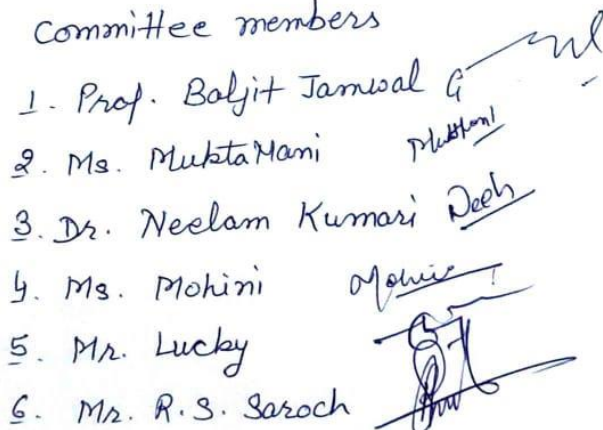 Committee members
1. Prof. Baljit Jamwal
2. Ms. Mukta Mani
3. Dr. Neelam Kumari
4. Ms. Mohini
5. Mr. Lucky
6. Mr. R.S. Saroch